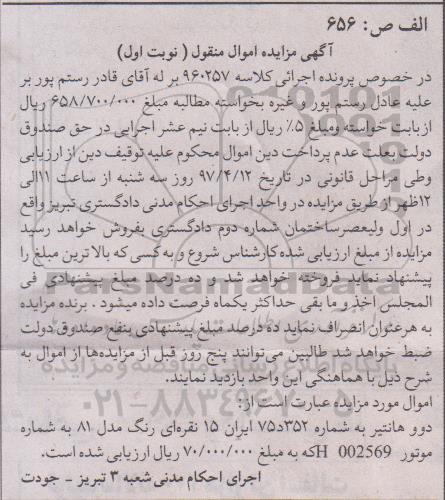 الف ص: ۶۵۶
آگهی مزایده اموال منقول ( نوبت اول)
در خصوص پرونده اجرائی کلاسه ۹۶۰۲۵۷ بر له آقای قادر رستم پور بر
علیه عادل رستم پور و غیره بخواسته مطالبه مبلغ ۶۵۸/۷۰۰/۰۰۰ ریال
از بابت خواسته ومبلغ ۵٪ ریال از بابت نیم عشر اجرایی در حق صندوق
دولت بعلت عدم پرداخت دین اموال محکوم علیه توقیف دین از ارزیابی
وطی مراحل قانونی در تاریخ ۹۷/۴/۱۲ روز سه شنبه از ساعت ۱۱الی
۱۲ظهر از طریق مزایده در واحد اجرای احکام مدنی دادگستری تبریز واقع
در اول ولیعصرساختمان شماره دوم دادگستری بفروش خواهد رسید
مزایده از مبلغ ارزیابی شده کارشناس شروع و به کسی که بالا ترین مبلغ را
پیشنهاد نماید فروخته خواهد شد و ده درصد مبلغ پیشنهادی فی
المجلس اخذ و ما بقی حداکثر یکماه فرصت داده میشود . برنده مزایده
به هرعنوان انصراف نماید ده درصد مبلغ پیشنهادی بنفع صندوق دولت
ضبط خواهد شد طالبین می‌توانند پنج روز قبل از مزایده‌ها از اموال به
شرح ذیل با هماهنگی این واحد بازدید نمایند.
اموال مورد مزایده عبارت است از:
دوو هانتیر به شماره ۳۵۲د۷۵ ایران ۱۵ نقره‌ای رنگ مدل ۸۱ به شماره
موتور H 002569 که به مبلغ ۷۰/۰۰۰/۰۰۰ ریال ارزیابی شده است.
اجرای احکام مدنی شعبه ۳ تبریز - جودت
ParsNamadData
پایگاه اطلاع رسانی مناقصه و مزایده
۰۲۱-۸۸۳۴۹۶۷۰-۵